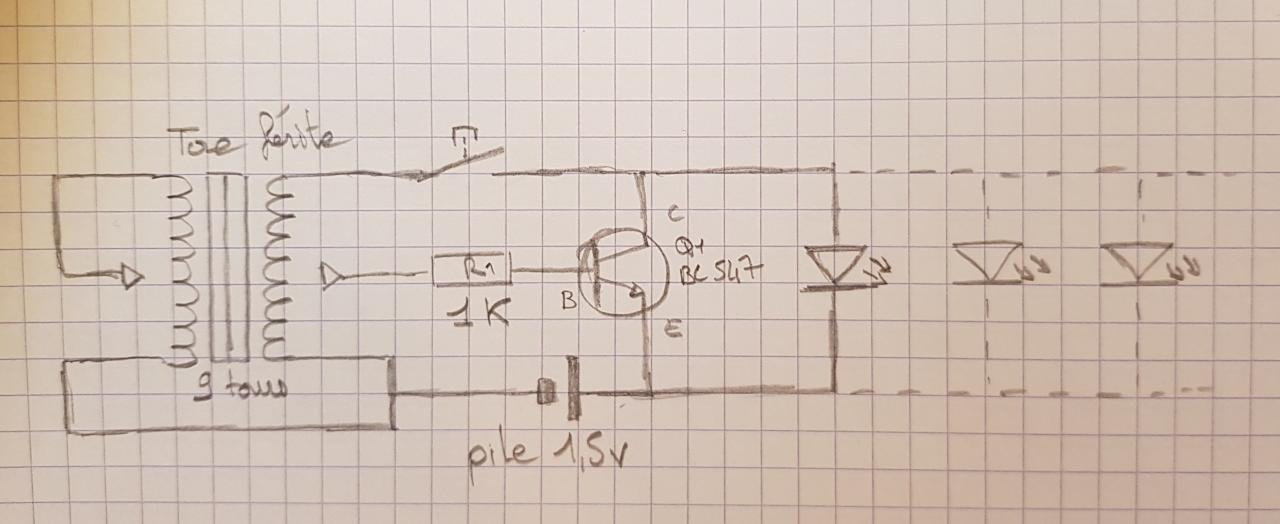 Tore férite
R1
1K
C
Q1
BC 547
B
E
9 tours
pile 1,5v